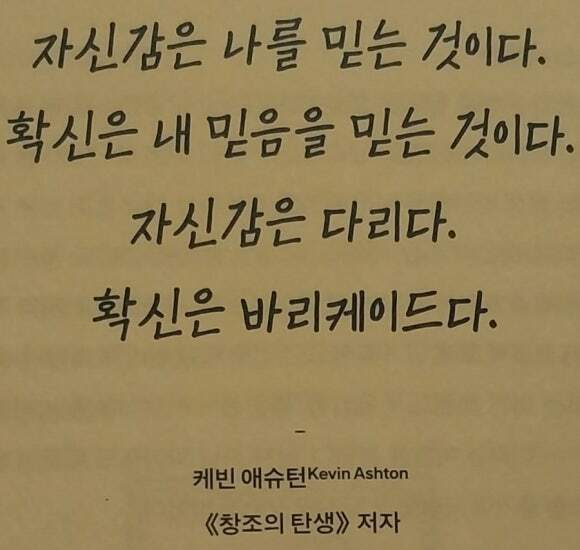 자신감은 나를 믿는 것이다.
확신은 내 믿음을 믿는 것이다.
자신감은 다리다.
확신은 바리케이드다.
–
케빈 애슈턴Kevin Ashton
《창조의 탄생》 저자